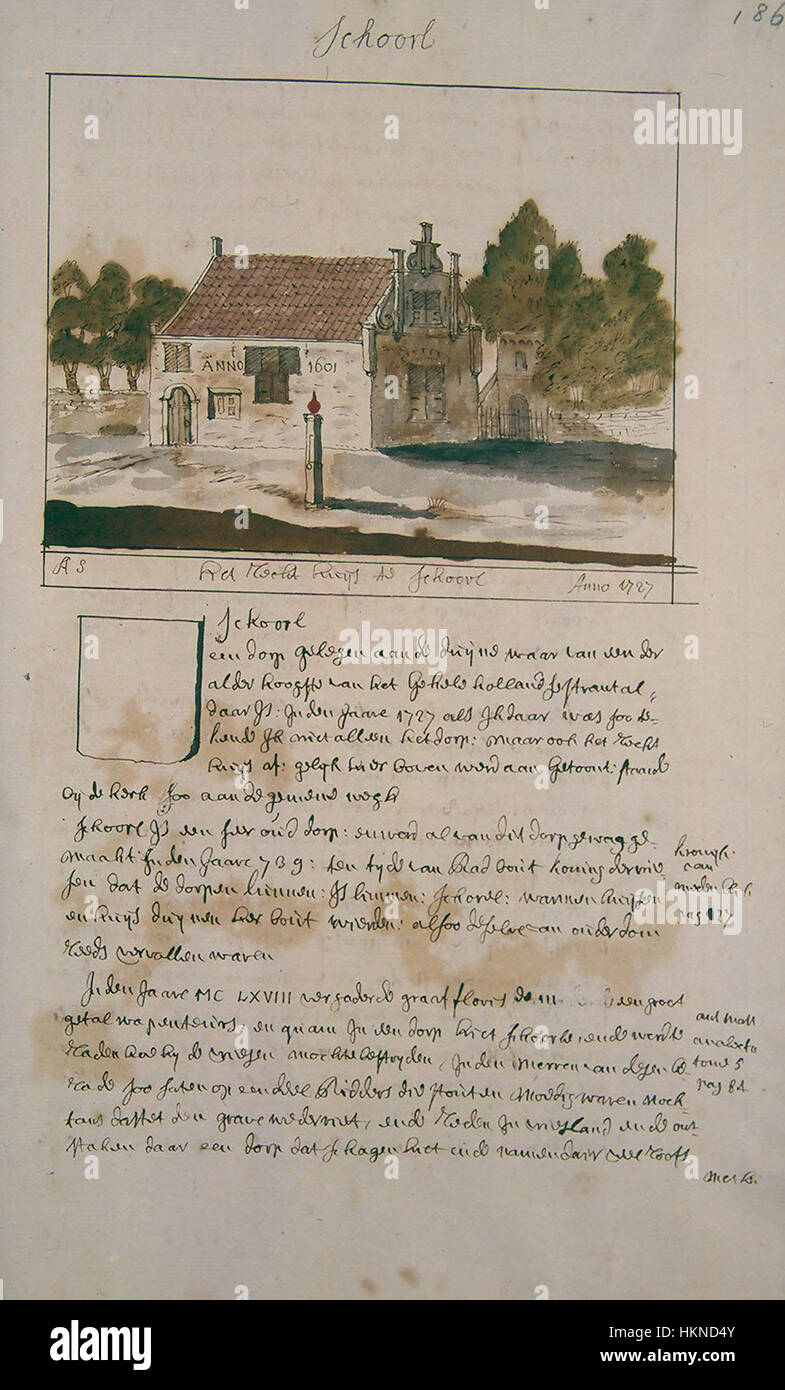 186
Schoorl
ANNO 1601
AS Het Recht huijs te Schoorl Anno 1727
Schoorl
een dorp gelegen aan de duijne waar van een der
alder hoogste van het gehele holland se strant al„
daar Js: Jnden Jaare 1727 als Jk daar was soo te„
kende Jk niet alleen het dorp: maar ook het Recht
huijs af: gelijk hier boven werd aan getoont: staande
bij de kerk soo aan de gemene wegh
Schoorl Js een seer oud dorp: en word al van dit dorp gewag ge„
maakt: Jnden Jaare 739: ten tyde van Rad bout koning der vrie„
sen dat de dorpen limmen: Schorel: warmen huijsen
en huijs duijnen her bout wierden: alsoo deselve van ouderdom
Reeds vervallen waren
kronijk
van
pag 127
Jnden Jaare MC LXVIII vergaderde graaf floris een groot
getal wapenteurs: en quam Jn een dorp hiet Schoorle, ende werdt
Raden hoe hij de vriesen mochte bestryden, Jnden merren van desen
Rade soo saten op een deel Ridders die stout en moedig waren noch„
tans dattet den grave niet, ende Reden Jn vriesland ende ont„
staken daar een dorp dat schagen hiet ende namen daar veel Roofs
ant matt
analecta
tome 5
pag 84
alamy
Image ID: HKND4Y
www.alamy.com